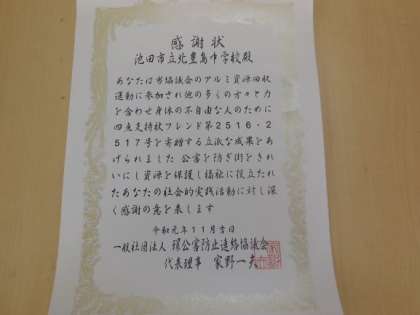 感謝状
池田市立北豊島中学校殿
あなたは当協議会のアルミ資源回収
運動に参加され他の多くの方々と力
を合わせ身体の不自由な人のために
四点支持杖フレンド第2516・2
517号を寄贈する立派な成果をあ
げられました 公害を防ぎ街をきれ
いにし資源を保護し福祉に役立たれ
たあなたの社会的実践活動に対し深
く感謝の意を表します
令和元年11月吉日
一般社団法人 環公害防止連絡協議会
代表理事 家野一夫